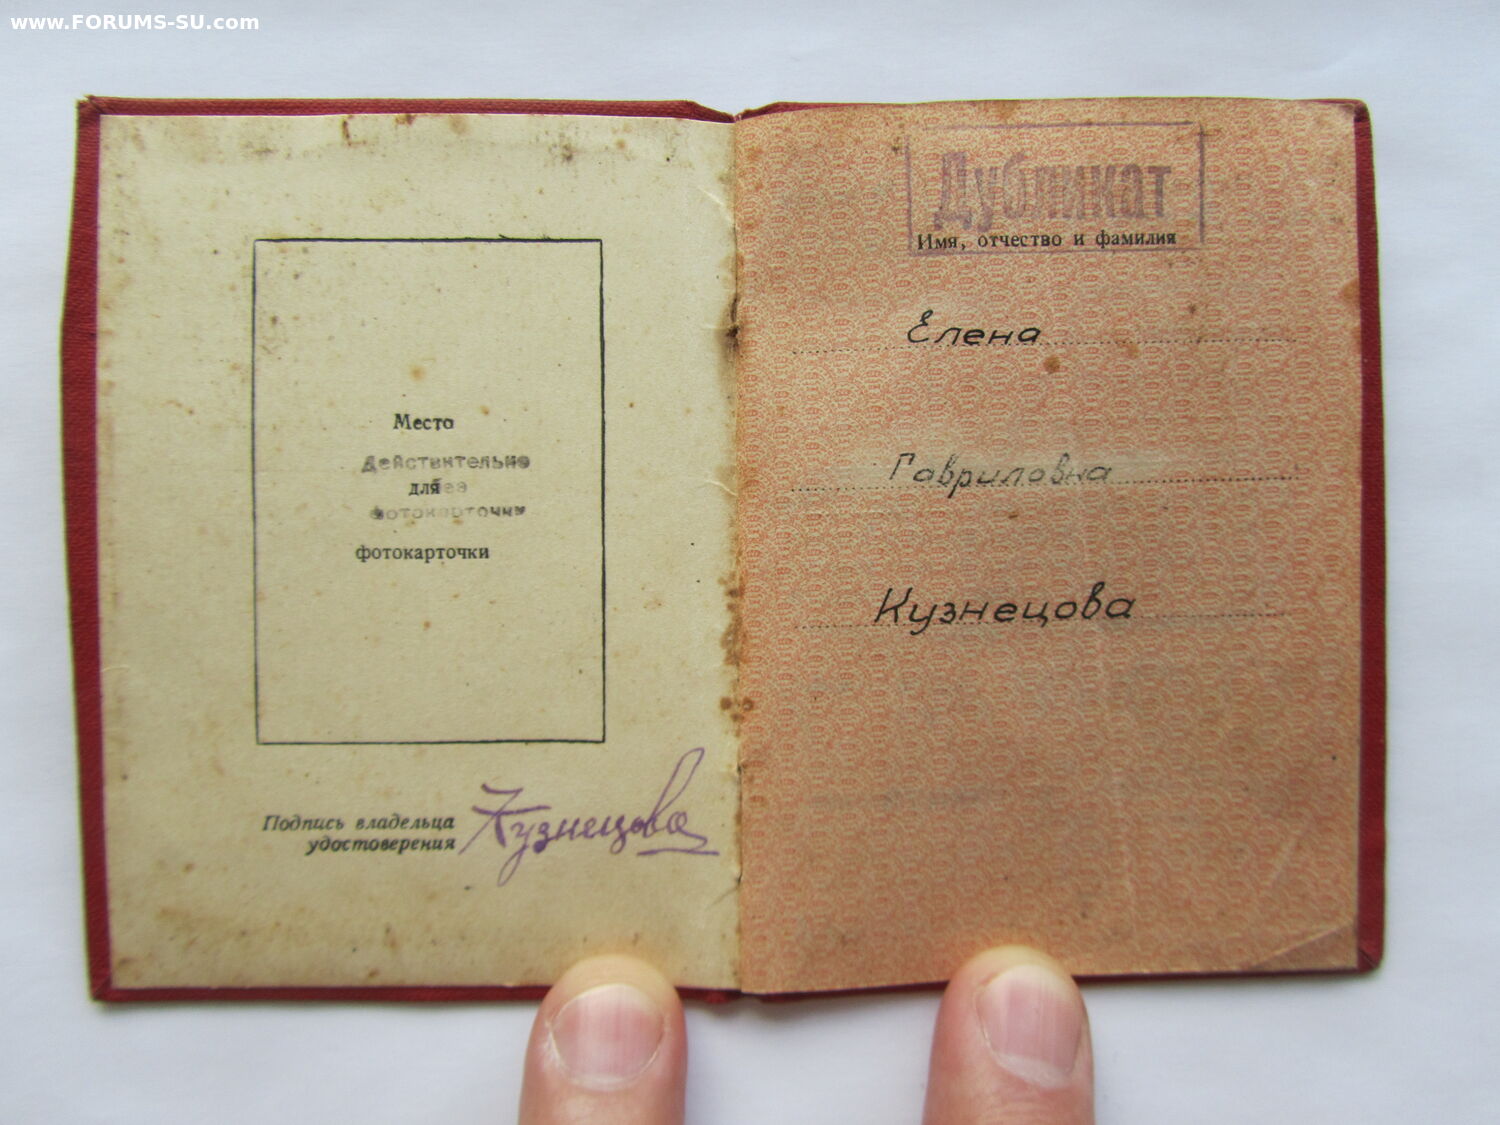 www.FORUMS-SU.com
Место
Действительно
для без
фотокарточки
фотокарточки
Подпись владельца
удостоверения
Кузнецова
Дубликат
Имя, отчество и фамилия
Елена
Гавриловна
Кузнецова